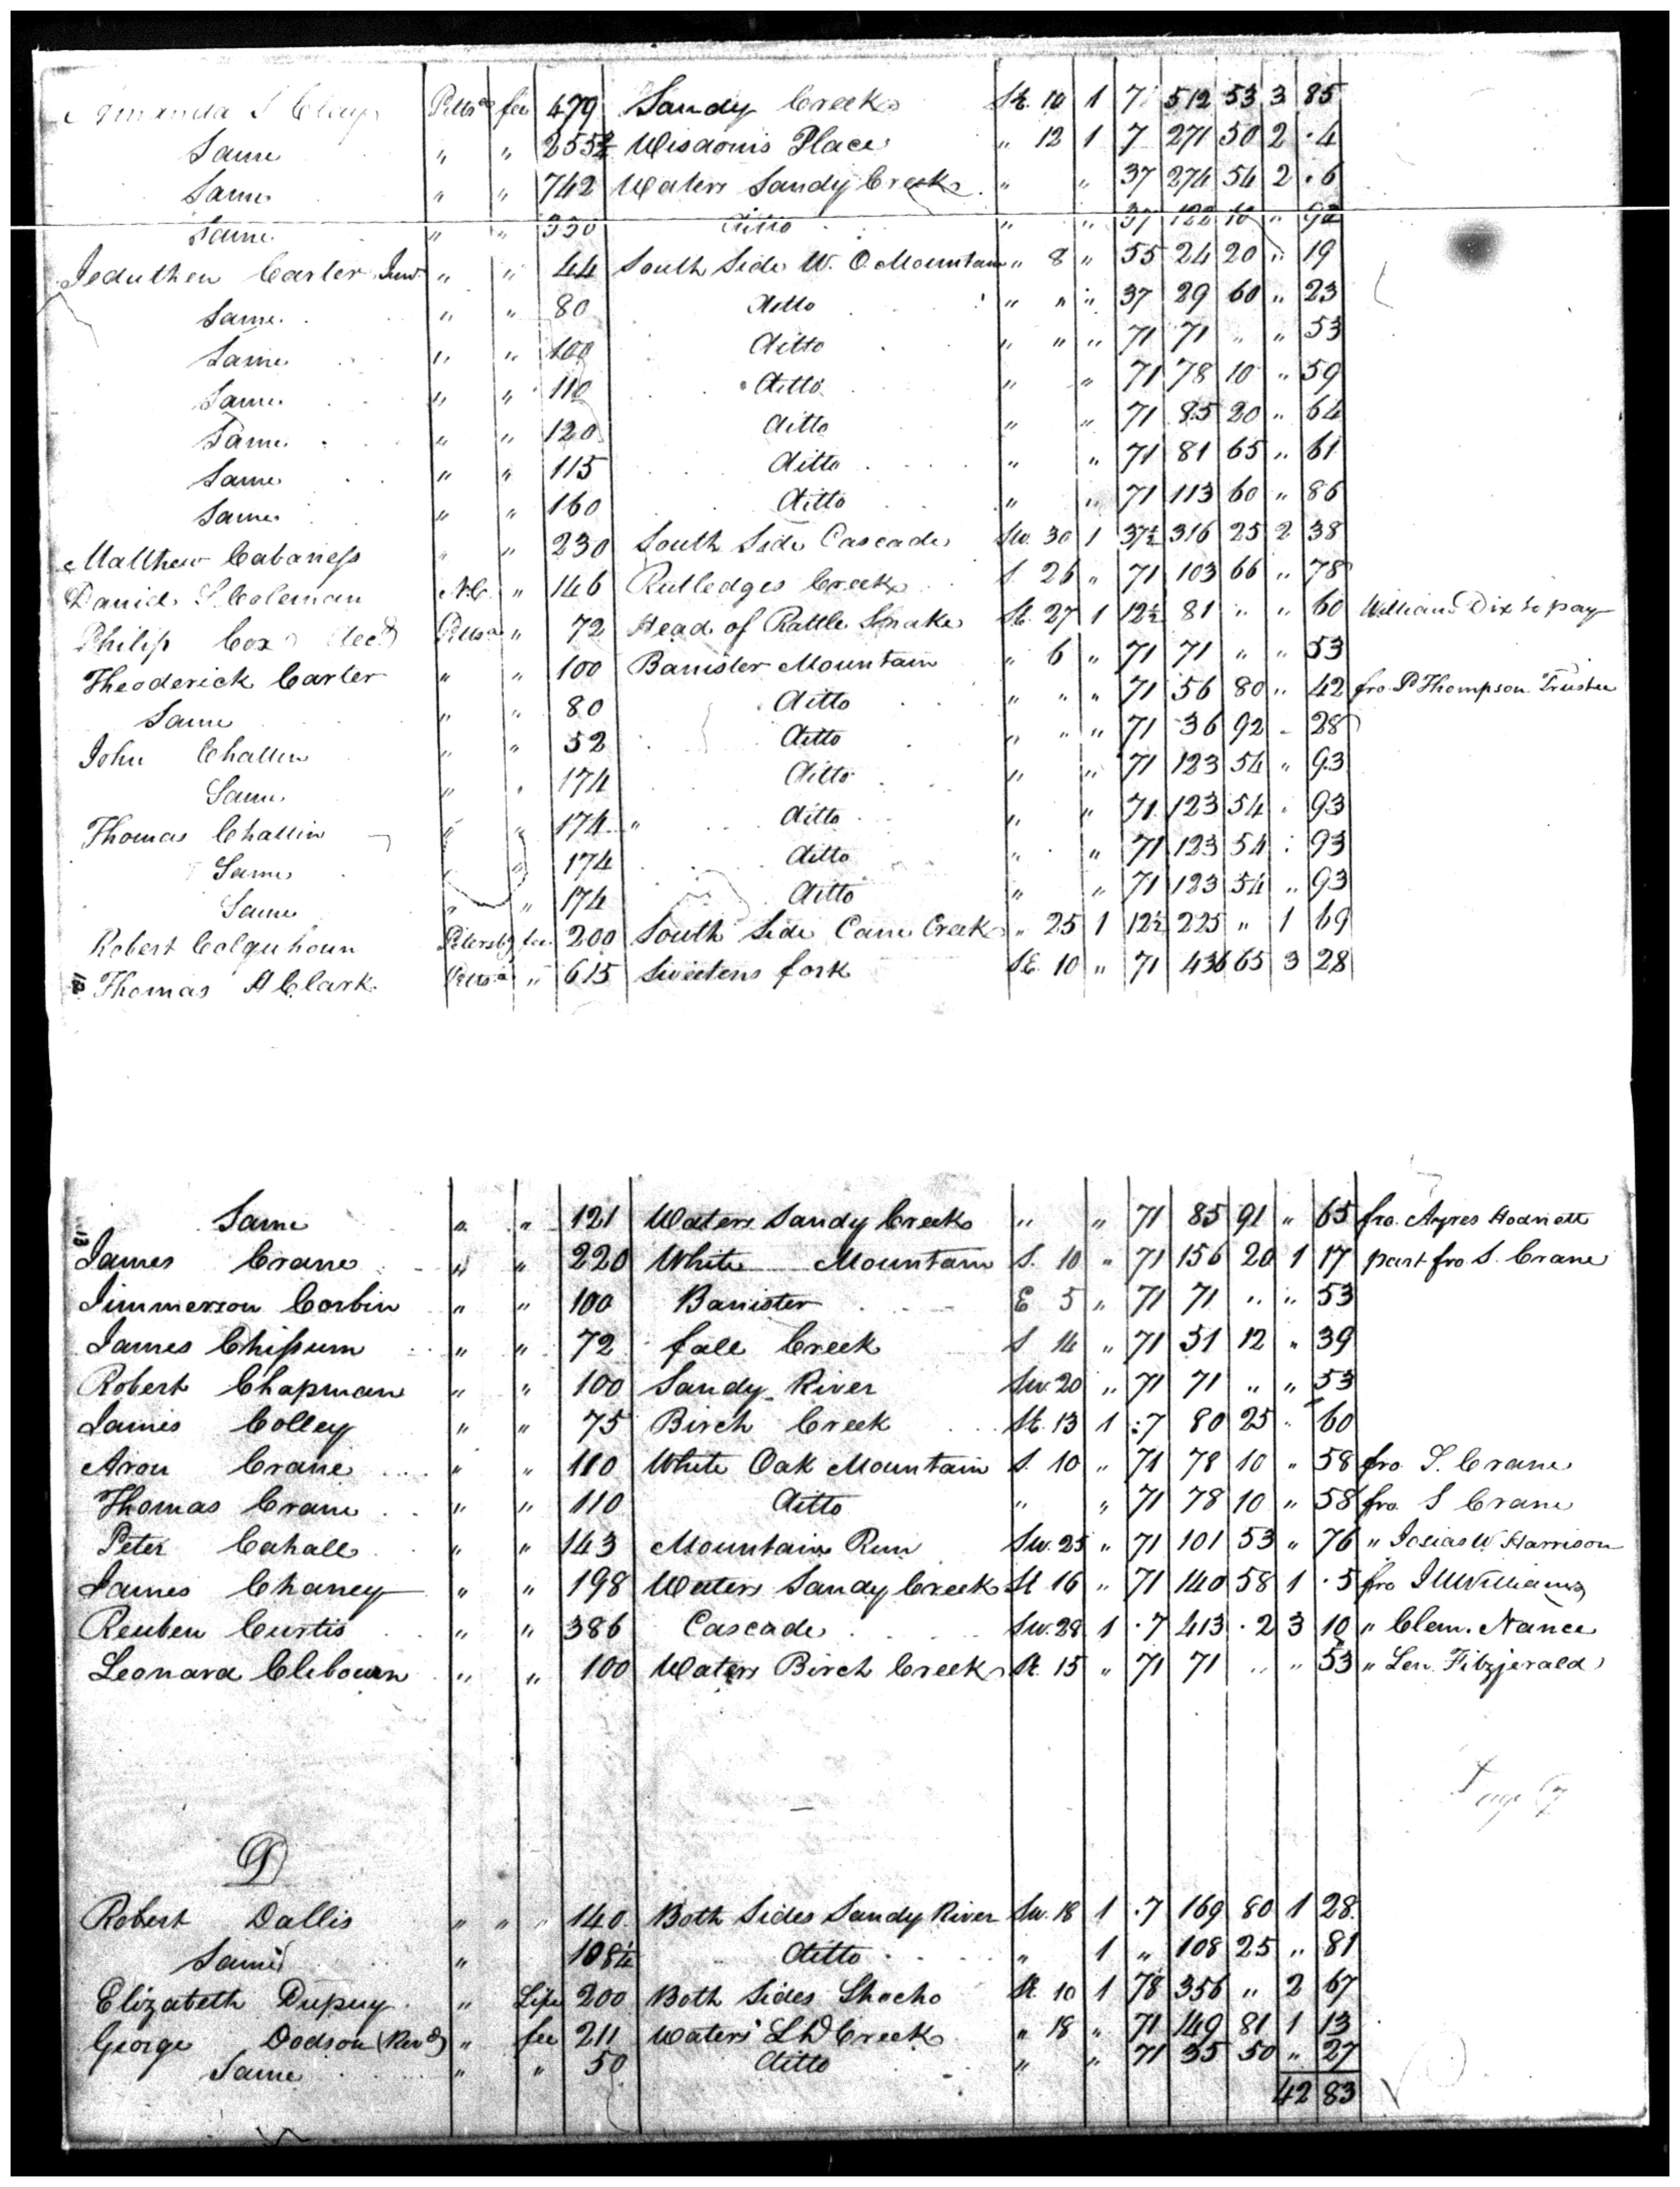 Amanda S Clay Pittsa fee 479 Sandy Creek SE. 10 1 7 512 53 3 85
Same " " 255¾ Wisdoms Place " 12 1 7 271 50 2 .4
Same " " 742 Waters Sandy Creek " " 37 274 54 2 .6
Same " " 330 ditto " " 37 122 10 " 92
Jeduthen Carter Junr " " 44 South Side W. O. Mountain " 8 " 55 24 20 " 19
Same " " 80 ditto " " " 37 29 60 " 23
Same " " 100 ditto " " " 71 71 " " 53
Same " " 110 ditto " " 71 78 10 " 59
Same " " 120 ditto " " 71 85 20 " 64
Same " " 115 ditto " " 71 81 65 " 61
Same " " 160 ditto " " 71 113 60 " 86
Matthew Cabaness " " 230 South Side Cascade Sw. 30 1 37½ 316 25 2 38
Daniel S. Coleman N.C. " 146 Rutledges Creek S. 26 " 71 103 66 " 78
Philip Cox decd Pittsa " 72 Head of Rattle Snake SE. 27 1 12½ 81 " " 60 William Dix to pay
Theoderick Carter " " 100 Banister Mountain " 6 " 71 71 " " 53
Same " " 80 ditto " " " 71 56 80 " 42 fro. P Thompson Trustee
John Challin " " 52 ditto " " " 71 36 92 " 28
Same " " 174 ditto " " 71 123 54 " 93
Thomas Challin " " 174 " ditto " " 71 123 54 " 93
Same " " 174 ditto " " 71 123 54 " 93
Same " " 174 ditto " " 71 123 54 " 93
Robert Colquhoun Petersbg fee 200 South Side Cane Creek " 25 1 12½ 225 " 1 69
12 Thomas A Clark Pittsa " 615 Sweetens fork SE. 10 " 71 436 65 3 28
Same " " 121 Waters Sandy Creek " " 71 85 91 " 65 fro. Ayres Hodnett
13 James Crane " " 220 White Mountain S. 10 " 71 156 20 1 17 part fro. S. Crane
Jimmerson Corbin " " 100 Banister E 5 " 71 71 " " 53
James Chissum " " 72 fall Creek S 14 " 71 51 12 " 39
Robert Chapman " " 100 Sandy River Sw. 20 " 71 71 " " 53
James Colley " " 75 Birch Creek SE. 13 1 .7 80 25 " 60
Aron Crane " " 110 White Oak Mountain S. 10 " 71 78 10 " 58 fro. S. Crane
Thomas Crane " " 110 ditto " " 71 78 10 " 58 fro. S Crane
Peter Cahall " " 143 Mountain Run Sw. 25 " 71 101 53 " 76 " Josias W Harrison
James Chaney " " 198 Waters Sandy Creek SE 16 " 71 140 58 1 .5 fro Williams
Reuben Curtis " " 386 Cascade Sw. 28 1 .7 413 .2 3 10 " Clem. Nance
Leonard Clebourn " " 100 Waters Birch Creek SE. 15 " 71 71 " " 53 " Len. Fitzjerald
D
Robert Dallis " " " 140 Both Sides Sandy River Sw. 18 1 .7 169 80 1 28
Same " 108¼ ditto " 1 " 108 25 " 81
Elizabeth Dupuy " Life 200 Both Sides Shocho SE. 10 1 78 356 " 2 67
George Dodson (Revd) " fee 211 Waters Creek " 18 " 71 149 81 1 13
Same " " 50 ditto " " 71 35 50 " 27
42 83